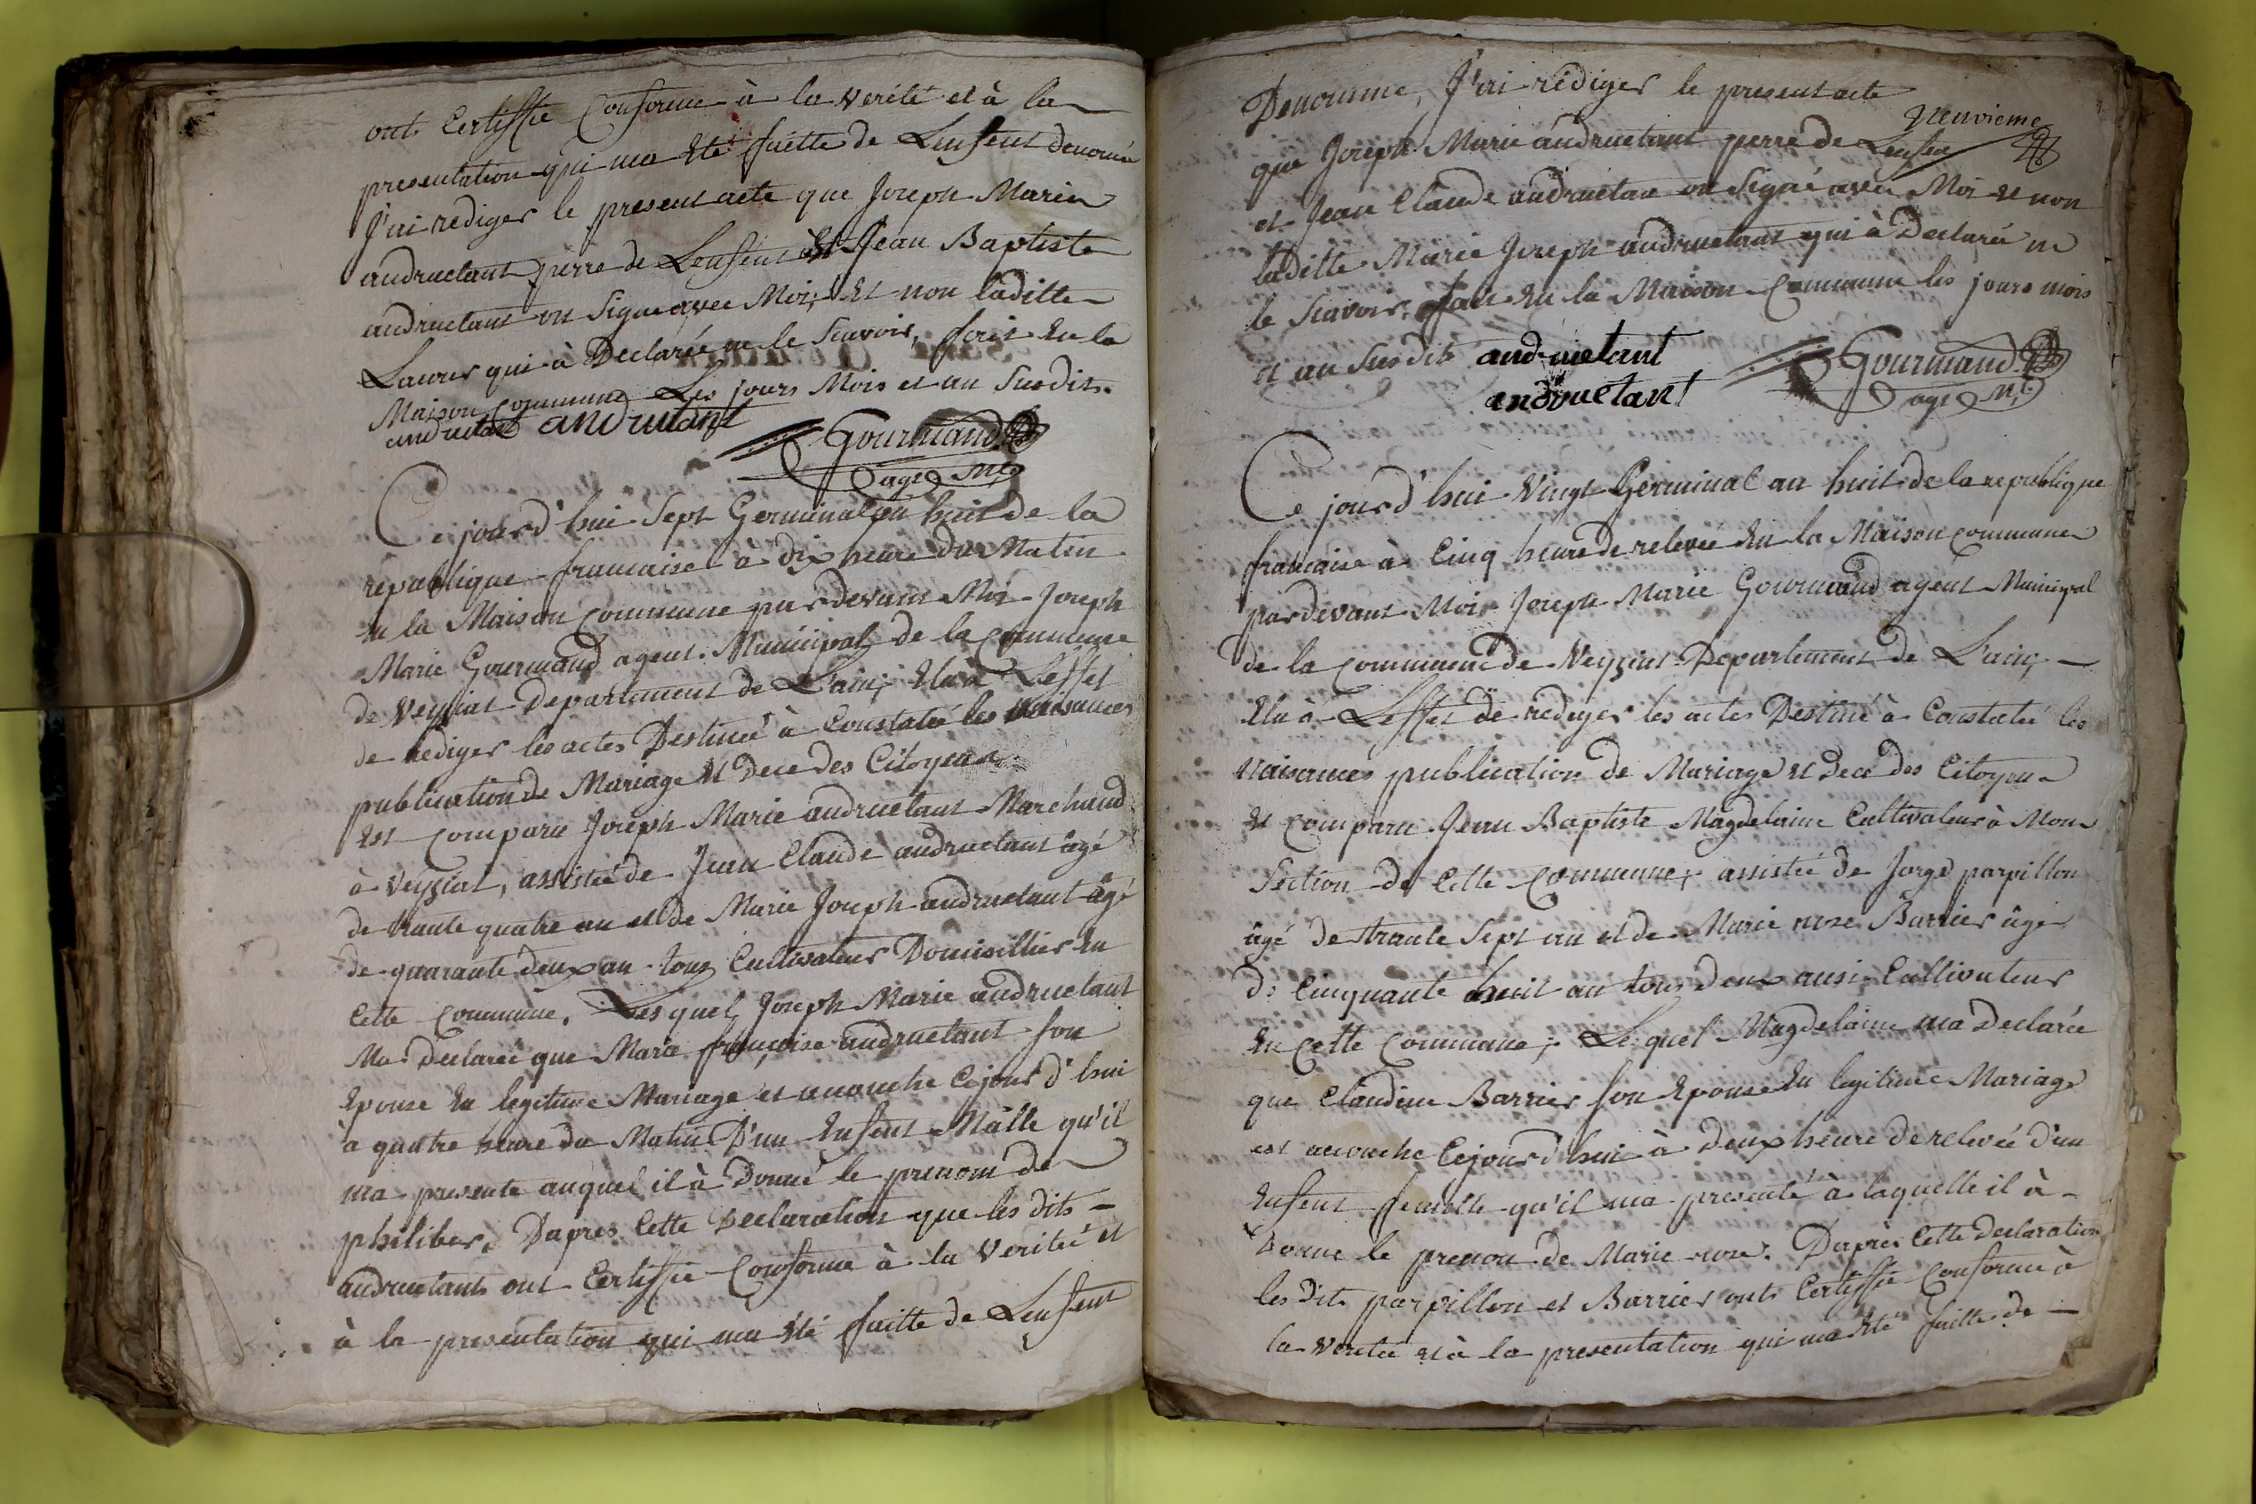 ont Certiffie Conforme à la verité et à la
presentation qui ma Eté faitte de Lenfent denomé
J'ai rediger le present acte que Joseph Marie
andruetant perre de Lenfent Et Jean Baptiste
andruetant on Signe avec Moi, Et non laditte
Laures qui à Declarée ne le Scavoir, fait En la
Maison Commune Les jours Mois et an Susdits.
andruetant andrutant
Gourmand
age M.
Ce jourd'hui Sept Germinal an huit de la
republique francaise à dix heure du Matin
en la Maison Commune par devant Moi Joseph
Marie Gourmand agent Municipal de la Commune
de Veyziat Departement de L'ain; Elu à Leffet
de rediger les actes Destinée à Constatée les naisances
publication de Mariage et Dece des Citoyen
Est comparu Joseph Marie andruetant Marchand
à Veyziat, assistée de Jean Claude andruetant âgé
de trante quatre an et de Marie Joseph andruetant âgé
de quarante deux an tous Cultivateur Domicillier En
Cette Commune. Lesquel Joseph Marie andruetant
Ma Declarée que Marie francoise andruetant son
Epouse En legitime Mariage et acouche Cejourd'hui
à quatre heure du Matin D'un Enfent Mâlle qu'il
ma presente auquel il à Donné le prenom de
philiber. Dapres Cette Declaration que les dits
andruetant ont Certiffie Conforme à la Veritéé et
à la presentation qui ma Eté faitte de Lenfent
Denomme, J'ai rédiger le present acte
Neuvieme
que Joseph Marie andruetant perre de Lenfent
et Jean Claude andruetant on Signé avec Moi et non
laditte Marie Joseph andruetant qui à Declarée ne
le Scavoir. fait En la Maison Commune les jours mois
et an Susdits andruetant
Gourmand
andruetant
age M.
Ce jourd'hui Vingt Germinal an huit de la republique
francaise à Cinq heure de relevée En la Maison commune
par devant Moi Joseph Marie Gourmand agent Municipal
de la Commune de Veyziat Departement de L'ain;
Elu à Leffet de rediger les actes Destiné à Constatée les
Naisances publication de Mariage et Dece des Citoyen
Et comparu Jean Baptiste Magdelaine Cultivateur à Mon
Section de Cette Commune, assistée de Jorge parpillon
âgé de trante Sept an et de Marie rose Barrier âge
de Cinquante huit an tous deux ausi Cultivateur
En Cette Commune; Lequel Magdelaine ma Declarée
que Claudine Barrier son Epouse En legitime Mariage
est acouche Cejourd'hui à deux heure de relevée d'un
Enfent femelle qu'il ma presenté à laquelle il à
Donne le prenon de Marie rose. Dapres Cette Declaration
les dits parpillon et Barrier ont Certiffie Conforme à
la veritée et à la presentation qui ma Eté faitte de